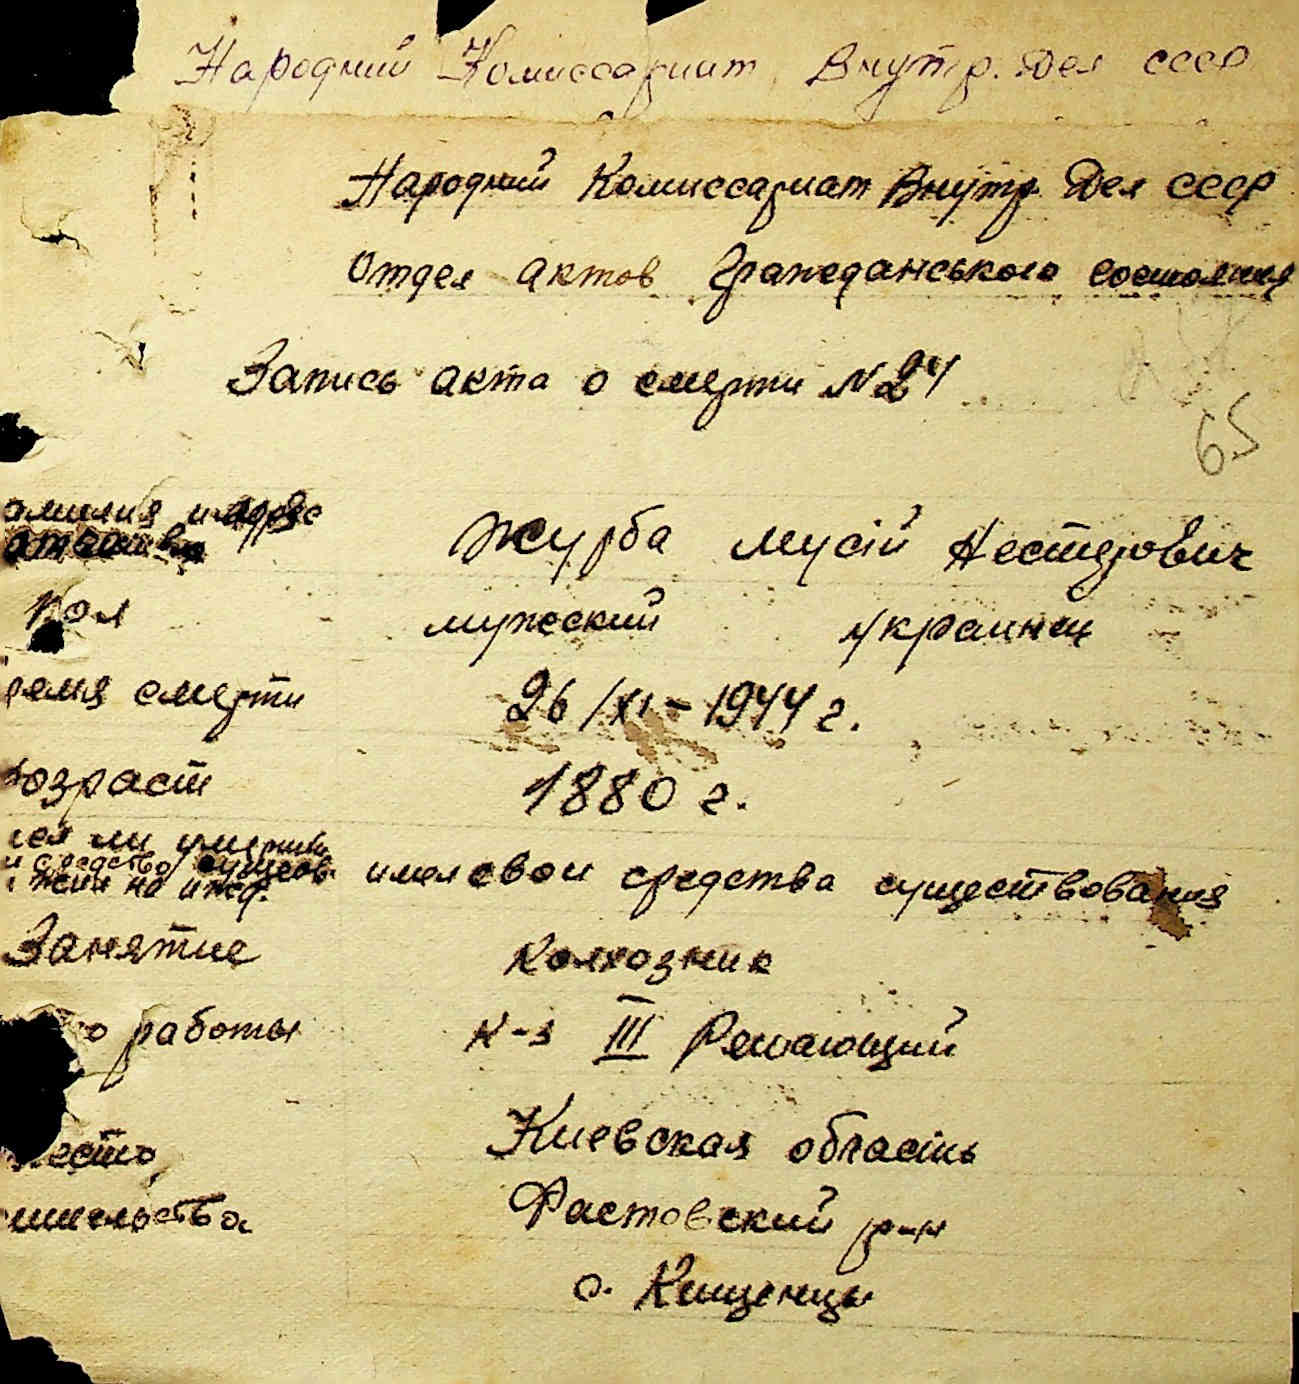 Народний Комиссариат Внутр. Дел СССР
Народний Комиссариат Внутр. Дел СССР
Отдел актов Гражеданського состояния
Запись акта о смерти N 24
65
амилия и адрес
Журба Мусій Нестерович
Пол мужеский украинец
ремя смерти 26/XI-1944 г.
возраст 1880 г.
лел ли умерший
и средство сущесв.
жил на ижд. имел свои средства существования
Занятие Колхозник
о работы К-з III Решающий
место Киевская область
ительства Фастовский р-н
с. Кищенцы